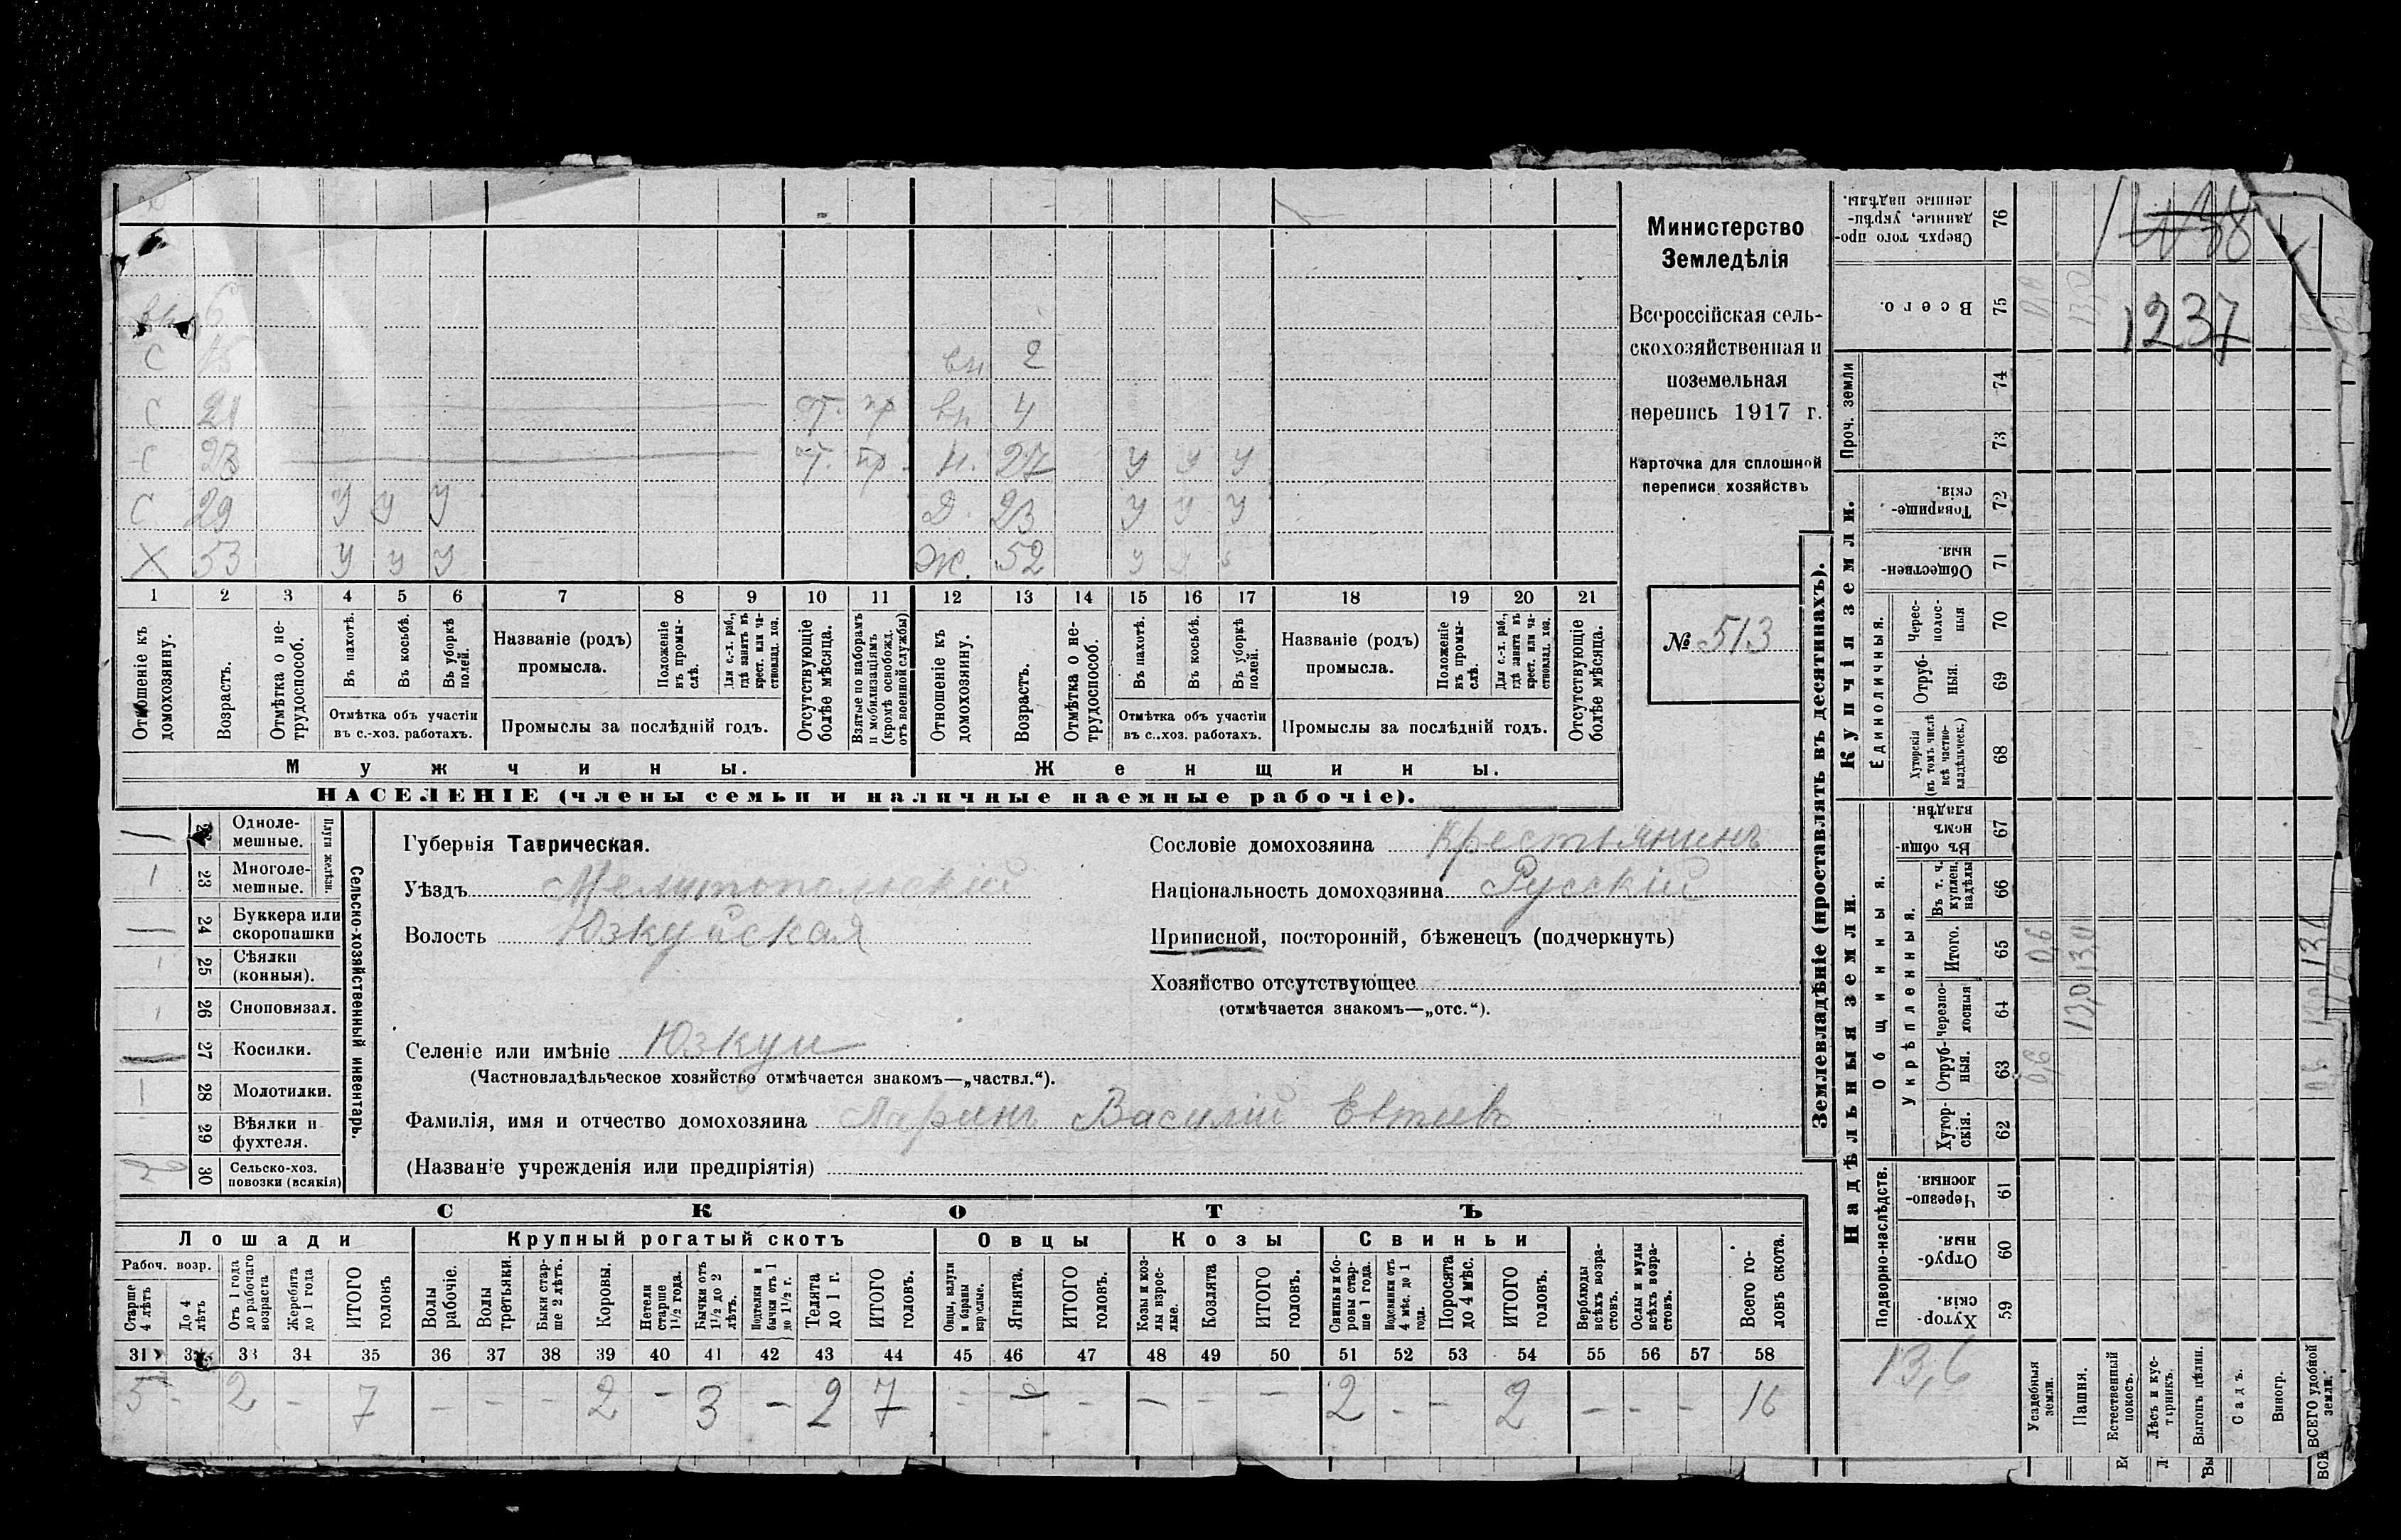 Министерство
Земледѣлія
Всероссійская сель-
скохозяйственная и
поземельная
перепись 1917 г.
Карточка для сплошной
переписи хозяйствъ
№ 513
вн 6
С 15 вн 2
С 21 от. пр вн. 4
С 23 от. пр. Н. 27 У У У
С 29 У У У Д. 23 У У У
Х 53 У У У Ж. 52 У У У
1 2 3 4 5 6 7 8 9 10 11 12 13 14 15 16 17 18 19 20 21
Отношеніе къ домохозяину.
Возрастъ.
Отмѣтка о не-трудоспособ.
Въ пахотѣ.
Въ косьбѣ.
Въ уборкѣ полей.
Отмѣтка объ участіи
въ с.-хоз. работахъ.
Названіе (родъ)
промысла.
Положеніе въ промы-слѣ.
Для с.-х. раб., гдѣ занятъ въ крест. или ча-стновлад. хоз.
Промыслы за послѣдній годъ.
Отсутствующіе болѣе мѣсяца.
Взятые по наборамъ и мобилизаціямъ (кромѣ освобожд. отъ военной службы)
Отношеніе къ домохозяину.
Возрастъ.
Отмѣтка о не-трудоспособ.
Въ пахотѣ.
Въ косьбѣ.
Въ уборкѣ полей.
Отмѣтка объ участіи
въ с..хоз. работахъ.
Названіе (родъ)
промысла.
Положеніе въ промы-слѣ.
Для с.-х. раб., гдѣ занята въ крест. или ча-стновлад. хоз.
Промыслы за послѣдній годъ.
Отсутствующіе болѣе мѣсяца.
Мужчины.
Женщины.
НАСЕЛЕНІЕ (члены семьи и наличные наемные рабочіе).
Сельско-хозяйственный инвентарь.
Плуги желѣзн.
— 22 Одноле-
мешные.
1 23 Многоле-
мешные.
— 24 Буккера или
скоропашки
1 25 Сѣялки
(конныя).
1 26 Сноповязал.
— 27 Косилки.
1 28 Молотилки.
29 Вѣялки и
фухтеля.
2 30 Сельско-хоз.
повозки (всякія)
Губернія Таврическая.
Уѣздъ Мелитопольскій
Волость Юзкуйская
Сословіе домохозяина Крестьянинъ
Національность домохозяина Русскій
Приписной, посторонній, бѣженецъ (подчеркнуть)
Хозяйство отсутствующее
(отмѣчается знакомъ—„отс.“).
Селеніе или имѣніе Юзкуи
(Частновладѣльческое хозяйство отмѣчается знакомъ—„частвл.“).
Фамилія, имя и отчество домохозяина Ларинъ Василій Евтиев
(Названіе учрежденія или предпріятія)
СКОТЪ
Лошади
Крупный рогатый скотъ
Овцы
Козы
Свиньи
Рабоч. возр.
Старше 4 лѣтъ
До 4 лѣтъ
Отъ 1 года до рабочаго возраста
Жеребята до 1 года
ИТОГО головъ
Волы рабочіе.
Волы третьяки.
Быки стар-ше 2 лѣтъ.
Коровы.
Нетели старше 1½ года.
Бычки отъ 1½ до 2 лѣтъ.
Подтелки и бычки отъ 1 до 1½ г.
Телята до 1 г.
ИТОГО головъ.
Овцы, валухи и бараны взрослые.
Ягнята.
ИТОГО головъ.
Козы и коз-лы взрос-лые.
Козлята
ИТОГО головъ.
Свиньи и бо-ровы стар-ше 1 года.
Подсвинки отъ 4 мѣс. до 1 года.
Поросята до 4 мѣс.
ИТОГО головъ.
Верблюды всѣхъ возра-стовъ.
Ослы и мулы всѣхъ возра-стовъ.
Всего го-ловъ скота.
31 32 33 34 35 36 37 38 39 40 41 42 43 44 45 46 47 48 49 50 51 52 53 54 55 56 57 58
5 - 2 - 7 - - - 2 - 3 - 2 7 - - - - - - 2 - - 2 - - - 16
Землевладѣніе (проставлять въ десятинахъ).
Надѣльныя земли.
Купчія земли.
Проч. земли
Подворно-наслѣдств.
Общинныя.
Укрѣпленныя.
Единоличныя.
Хутор-скія. 59
Отруб-ныя. 60
Черезпо-лосныя. 61
Хутор-скія. 62
Отруб-ныя. 63
Черезпо-лосныя 64
Итого. 65
Въ т. ч. куплен. надѣлы 66
Въ общин-номъ владѣн. 67
Хуторскія (въ томъ числѣ всѣ частно-владѣльческ.) 68
Отруб-ныя. 69
Черес-полос-ныя 70
Обществен-ныя 71
Товарище-скія. 72
73
74
Всего. 75
Сверхъ того про-данные, укрѣп-ленные надѣлы. 76
1237
13,6
Усадебныя земли.
0,6 0,6
Пашня.
13,0 13,0 13,0
Естественный покосъ.
Лѣсъ и кус-тарникъ.
Выгонъ цѣлин.
Садъ.
Виногр.
ВСЕГО удобной земли.
0,6 13,0